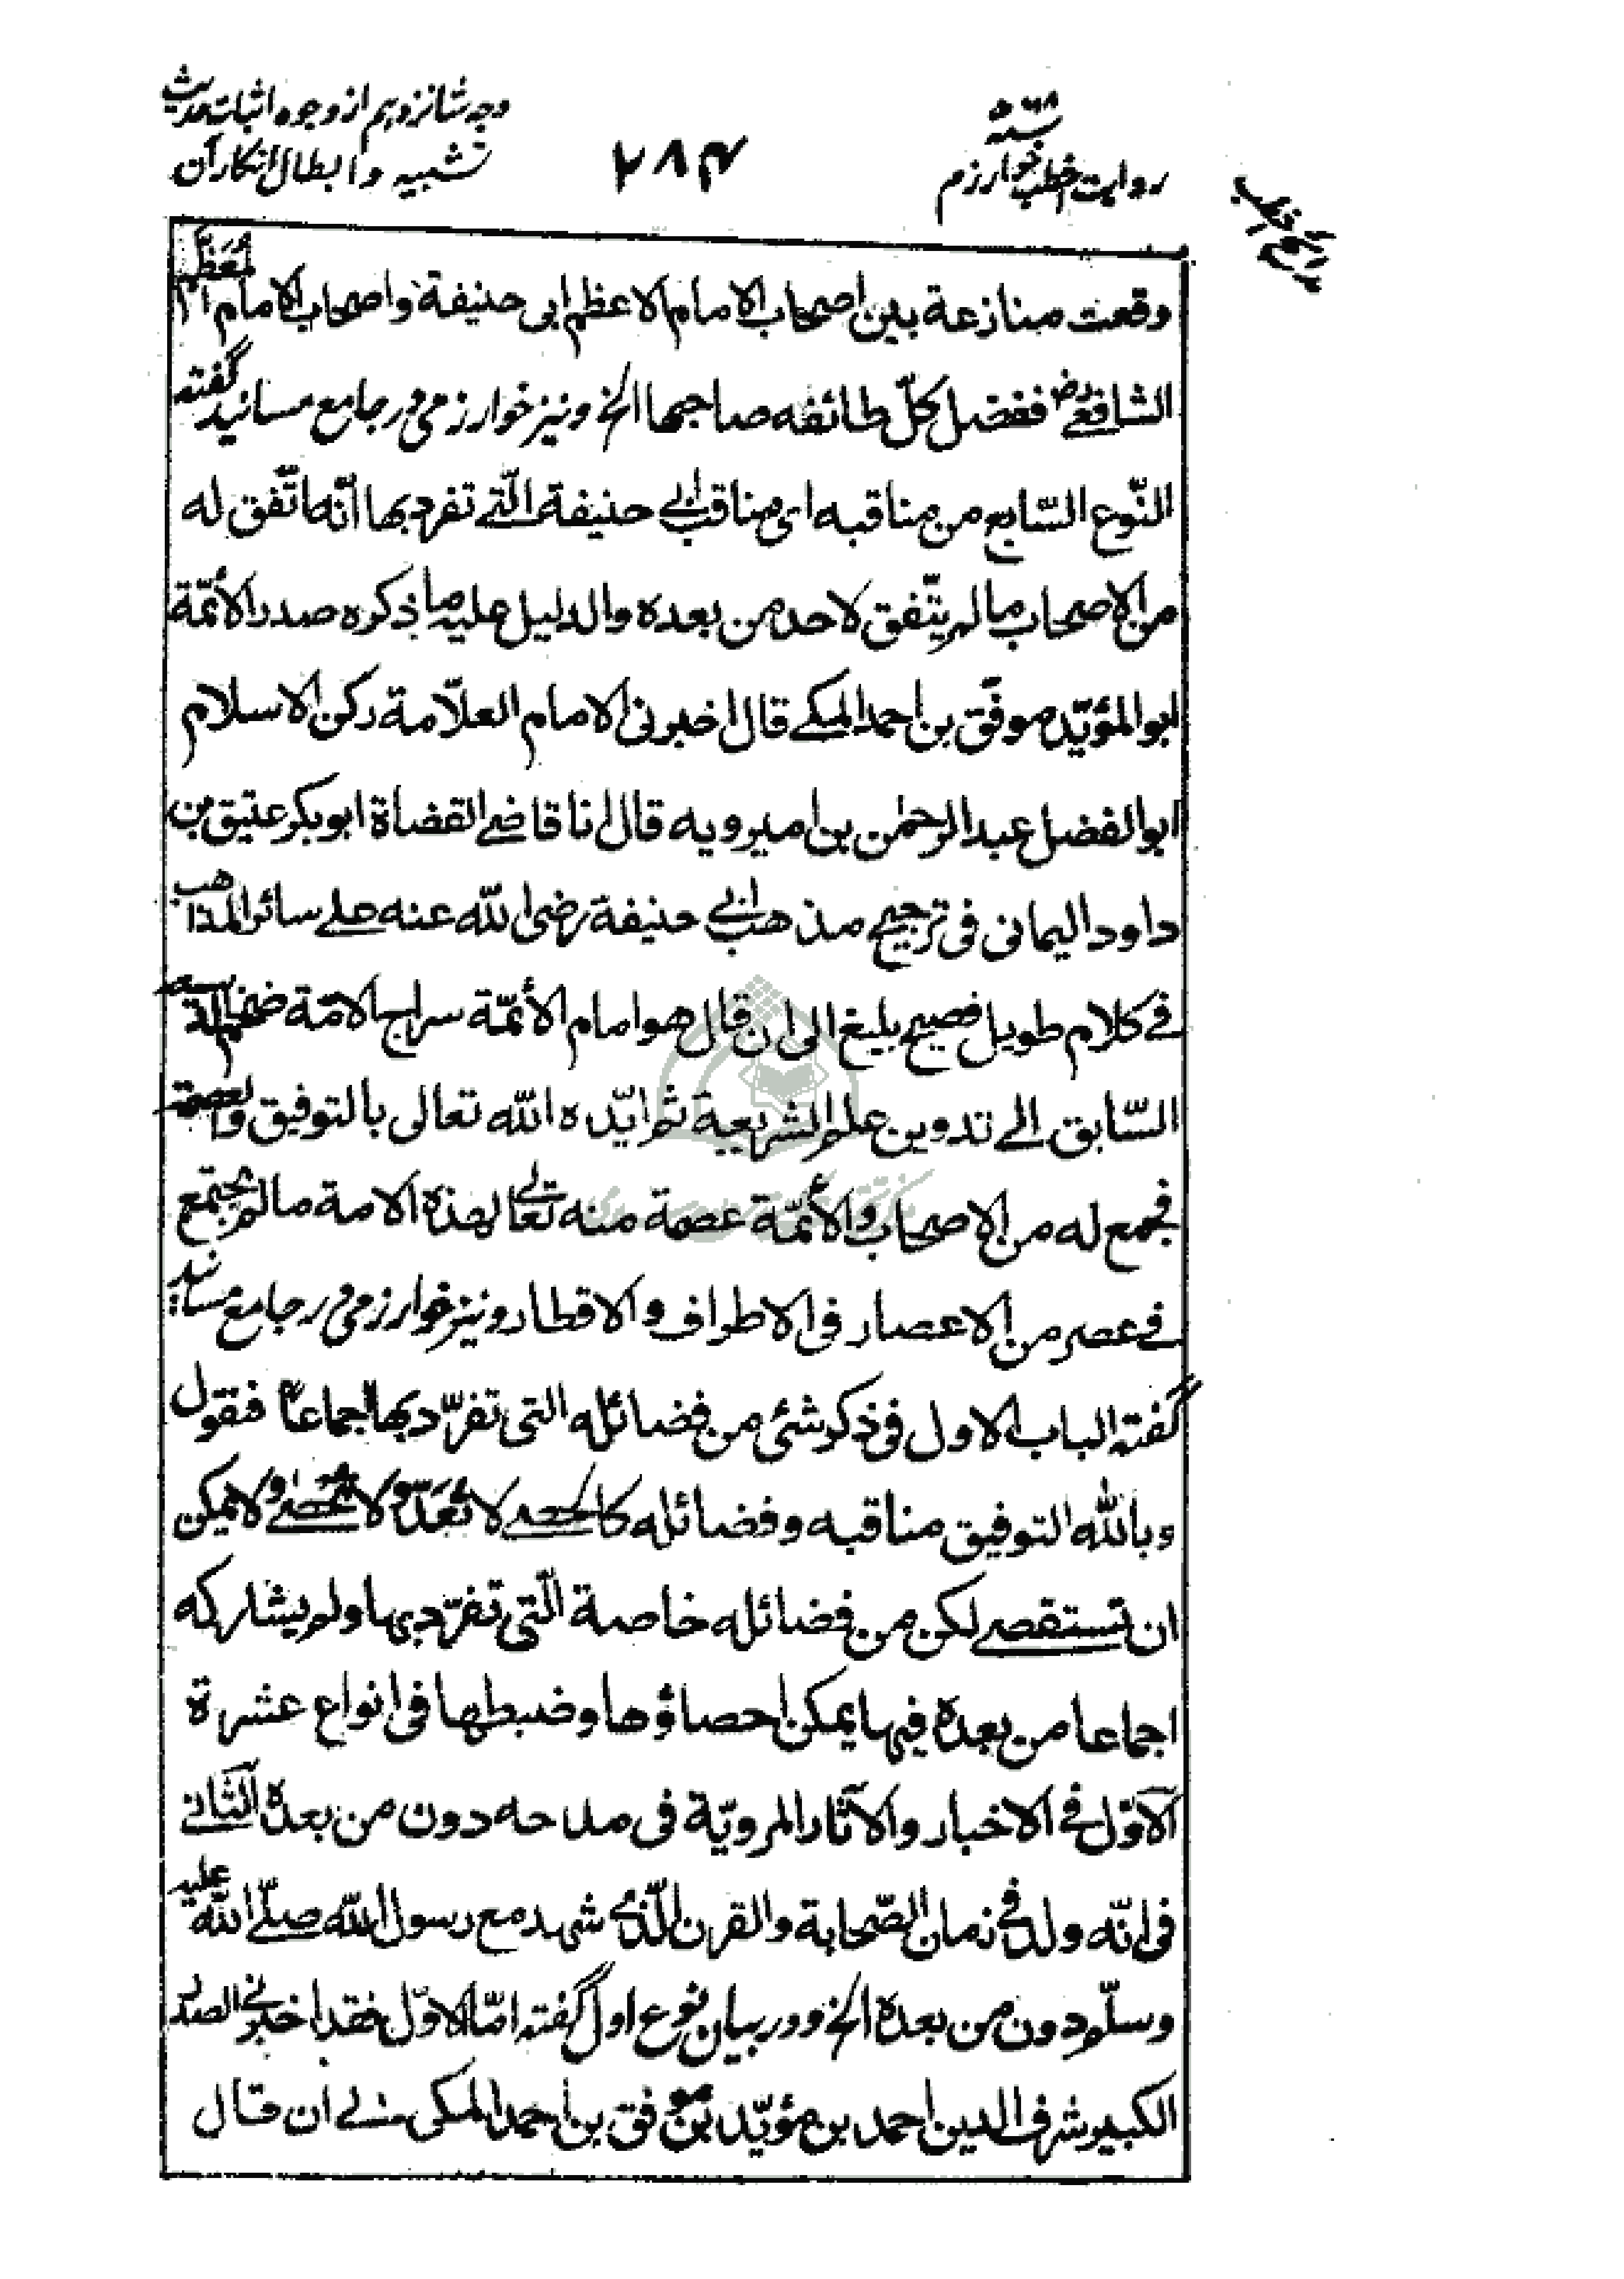 وجه شانزدهم از وجوه اثبات حدیث
تشبیه و ابطال انکار آن
۲۸۴
تتمه
روایت اخطب خوارزم
وقعت منازعة بین اصحاب الامام الاعظم ابی حنیفة و اصحاب الامام المعظّم
الشافعی رض ففضل کلّ طائفه صاحبها الخ و نیز خوارزمی در جامع مسانید گفته
النّوع السّابع من مناقبه ای مناقب ابی حنیفة الّتی تفرد بها انّه اتّفق له
من الاصحاب ما لم یتّفق لاحد من بعده والدلیل علیه ما ذکره صدر الأئمّة
ابو المؤیّد موفّق بن احمد المکی قال اخبرنی الامام العلّامة رکن الاسلام
ابو الفضل عبد الرحمٰن بن امیرویه قال انا قاضی القضاة ابو بکر عتیق بن
داود الیمانی فی ترجیح مذهب ابی حنیفة رضی الله عنه علی سائر المذاهب
فی کلام طویل فصیح بلیغ الی ان قال هو امام الأئمّة سراج الامّة ضخم الدسیعة
السّابق الی تدوین علم الشریعة ثم ایّده الله تعالی بالتوفیق والعصمة
فجمع له من الاصحاب والأئمّة عصمة منه تعالی لهذه الامة ما لم یجتمع
فی عصر من الاعصار فی الاطراف والاقطار و نیز خوارزمی در جامع مسانید
گفته الباب الاول فی ذکر شئی من فضائله التی تفرّد بها اجماعاً فنقول
وبالله التوفیق مناقبه وفضائله کالحصی لا تُعَدّ ولا تحصی ولا یمکن
ان تستقصی لکن من فضائله خاصة الّتی تفرّد بها ولم یشارکه
اجماعا من بعده فیها یمکن احصاؤها وضبطها فی انواع عشرة
الأوّل فی الاخبار والآثار المرویّة فی مدحه دون من بعده الثّانی
فی انّه ولد فی زمان الصّحابة والقرن الّذی شهد مع رسول الله صلّی الله علیه
وسلّم دون من بعده الخ و در بیان نوع اول گفته امّا الاوّل فقد اخبرنی الصدر
الکبیر شرف الدین احمد بن مؤیّد بن موفق بن احمد المکی الی ان قال